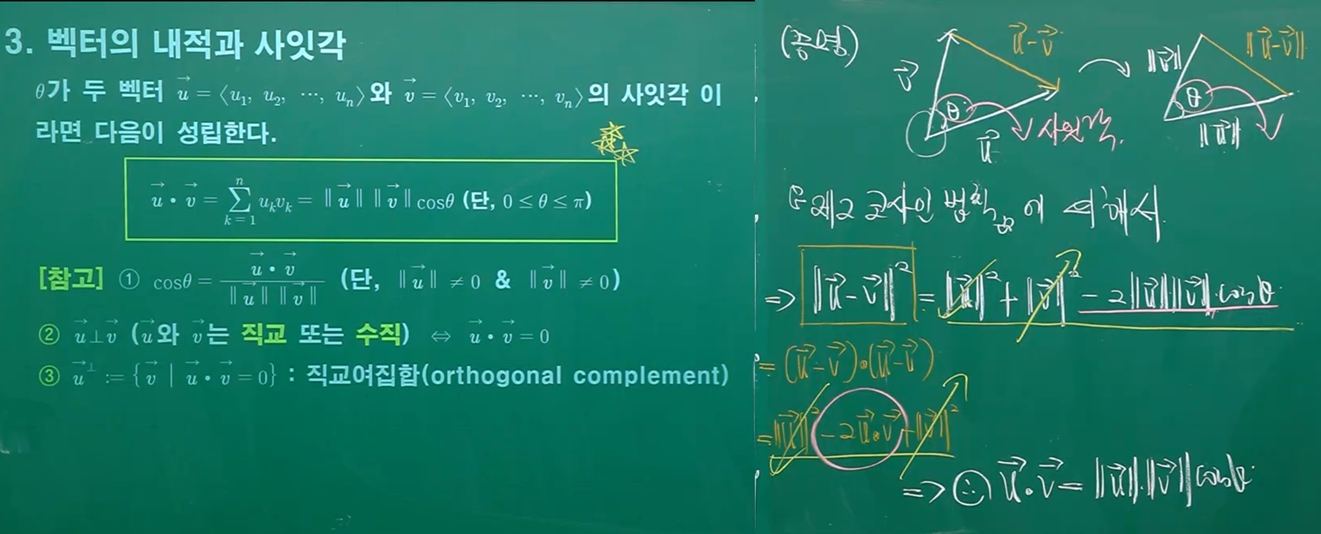 3. 벡터의 내적과 사잇각
θ가 두 벡터 u⃗ = ⟨u₁, u₂, ⋯, uₙ⟩와 v⃗ = ⟨v₁, v₂, ⋯, vₙ⟩의 사잇각 이
라면 다음이 성립한다.
u⃗ • v⃗ = ∑ₖ₌₁ⁿ uₖvₖ = ‖u⃗‖ ‖v⃗‖cosθ (단, 0 ≤ θ ≤ π)
[참고] ① cosθ = u⃗ • v⃗ / ‖u⃗‖ ‖v⃗‖ (단, ‖u⃗‖ ≠ 0 & ‖v⃗‖ ≠ 0)
② u⃗⊥v⃗ (u⃗와 v⃗는 직교 또는 수직) ⇔ u⃗ • v⃗ = 0
③ u⃗^⊥ := {v⃗ | u⃗ • v⃗ = 0} : 직교여집합(orthogonal complement)
(증명)
v⃗ u⃗-v⃗ θ u⃗ 사잇각.
‖v⃗‖ ‖u⃗-v⃗‖ θ ‖u⃗‖
제2 코사인 법칙 에 의해서
⇒ ‖u⃗-v⃗‖² = ‖u⃗‖² + ‖v⃗‖² - 2‖u⃗‖‖v⃗‖·cosθ
= (u⃗-v⃗)•(u⃗-v⃗)
= ‖u⃗‖² - 2u⃗•v⃗ + ‖v⃗‖²
⇒ u⃗•v⃗ = ‖u⃗‖·‖v⃗‖cosθ